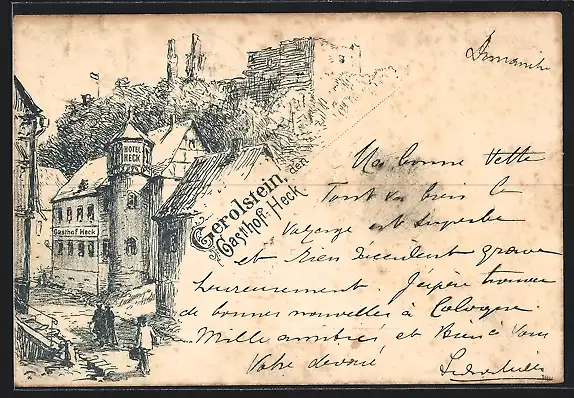 Dimanche
HOTEL
HECK
Gasthof Heck
Gerolstein, den
Gasthof Heck
Ma bonne Yette
Tout va bien le
voyage est superbe
et rien d'accident grave
heureusement. J'espère trouver
de bonnes nouvelles à Cologne.
Mille amitiés et bien à vous
Votre dévoué